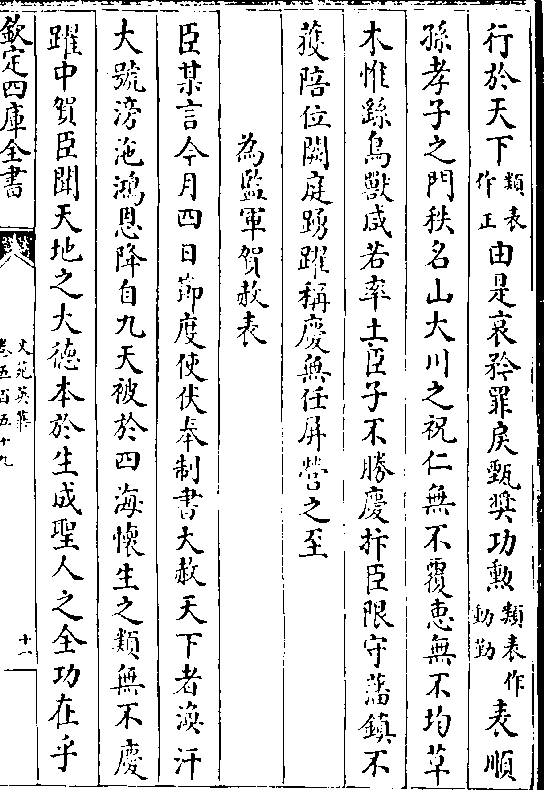 行於天下類表作正由是哀矜罪戾甄奬功勲類表作動勤表順
孫孝子之門秩名山大川之祝仁無不覆恵無不均草
木惟繇鳥獸咸若率土臣子不勝慶抃臣限守藩鎮不
獲陪位闕庭踴躍稱慶無任屏營之至
為監軍賀赦表
臣某言今月四日節度使伏奉制書大赦天下者渙汗
大號滂沲鴻恩降自九天被於四海懷生之類無不慶
躍中賀臣聞天地之大德本於生成聖人之全功在乎
欽定四庫全書
文苑英華
卷五百五十九
十一